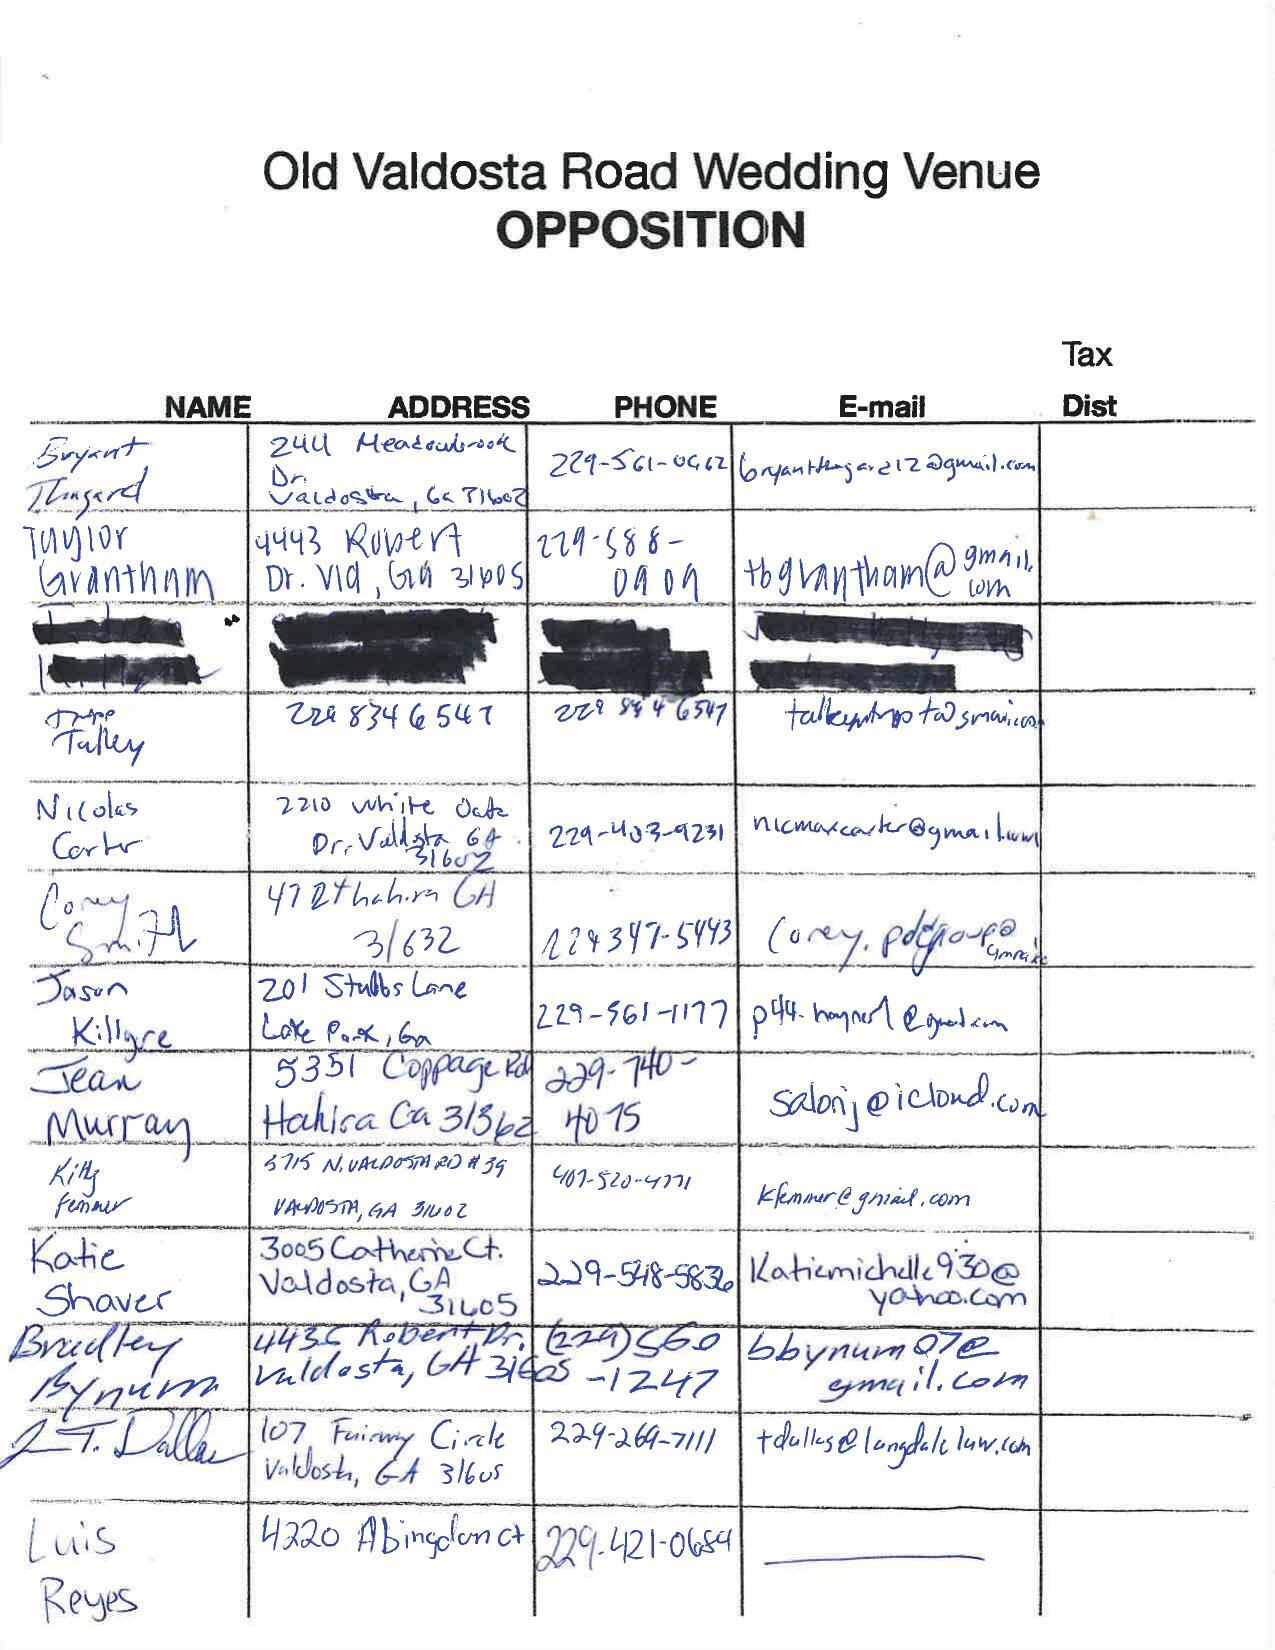 Old Valdosta Road Wedding Venue
OPPOSITION
Tax
NAME ADDRESS PHONE E-mail Dist
Bryant
244 Meadowbrook
Dr.
Valdosta, Ga 31602
229-561-0662
Taylor
Grantham
4443 Robert
Dr. Vld, GA 31605
229-588-
0909
tbgrantham@gmail.
com
Talley
229 834 6547
229 834 6547
Nicolas
Carter
2210 White Oak
Dr., Valdosta GA
31602
229-403-9231
nicmaxcarter@gmail.com
Corey
Smith
Hahira GA
31632
229 347-5443
Corey.pdggroup@
gmail
Jason
Killgre
201 Stubbs Lane
Lake Park, Ga
229-561-1177
Jean
Murray
5351 Coppage Rd
Hahira Ga 31362
229-740-
4075
salonj@icloud.com
Kitty
Femmer
5715 N. VALDOSTA RD #39
VALDOSTA, GA 31602
407-520-4771
kfemmer@gmail.com
Katie
Shaver
3005 Catherine Ct.
Valdosta, GA
31605
229-548-5836
Katiemichelle930@
yahoo.com
Bradley
Bynum
4435 Robert Dr.
Valdosta, GA 31605
(229)560
-1247
bbynum07@
gmail.com
T. Dallas
107 Fairway Circle
Valdosta, GA 31605
229-269-7111
tdallas@langdalelaw.com
Luis
Reyes
4220 Abingdon ct
229-421-0684